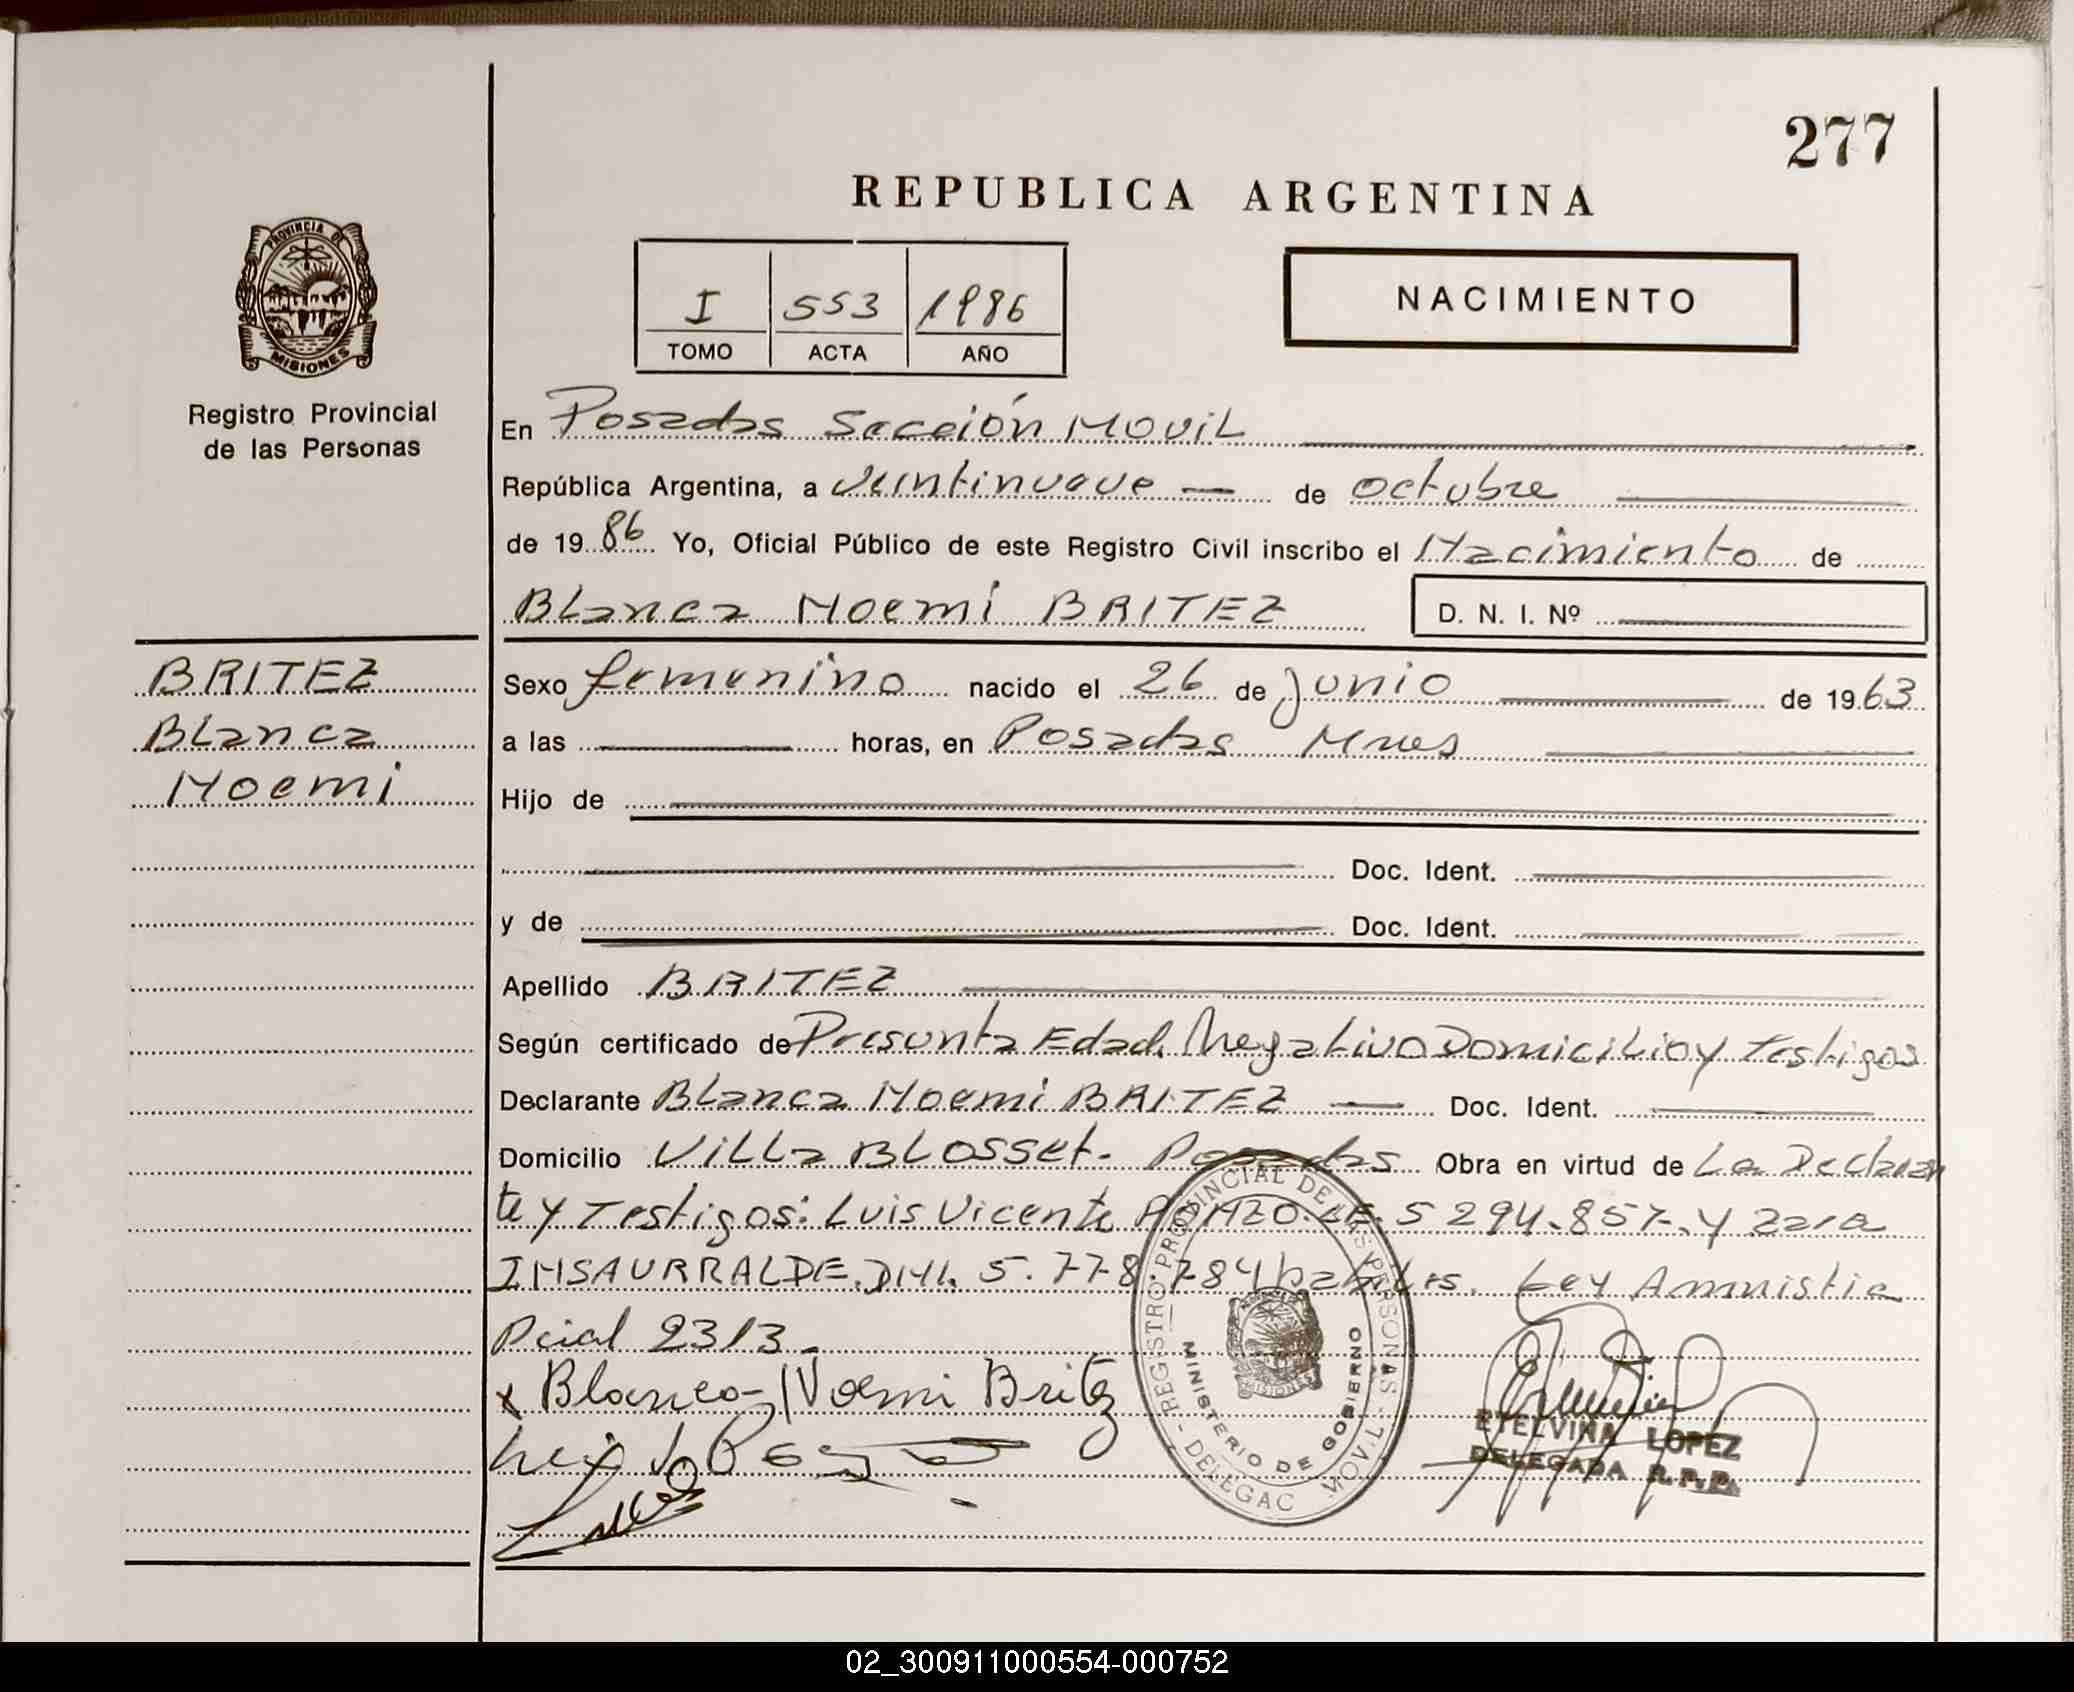 277
REPUBLICA ARGENTINA
PROVINCIA DE
MISIONES
Registro Provincial
de las Personas
I 553 1986
TOMO ACTA AÑO
NACIMIENTO
En Posadas Sección Movil
República Argentina, a veintinueve — de octubre
de 1986 Yo, Oficial Público de este Registro Civil inscribo el Nacimiento de
Blanca Noemi BRITEZ D. N. I. Nº
BRITEZ
Blanca
Noemi
Sexo femenino nacido el 26 de junio de 1963
a las horas, en Posadas Mnes
Hijo de
Doc. Ident.
y de Doc. Ident.
Apellido BRITEZ
Según certificado de Presunta Edad, Negativo Domicilio y testigos
Declarante Blanca Noemi BRITEZ — Doc. Ident.
Domicilio Villa BLOSSET. Posadas Obra en virtud de La Declaran
te y Testigos: Luis Vicente LE. 5 294.857. y
INSAURRALDE. DNI. 5.778.784 Ley Amnistia
Pcial 2313
x Blanca Noemi Britez
REGISTRO PROVINCIAL DE LAS PERSONAS - DELEGAC MOVIL -
MINISTERIO DE GOBIERNO
MISIONES
ETELVINA LOPEZ
DELEGADA R.P.P.
02_300911000554-000752